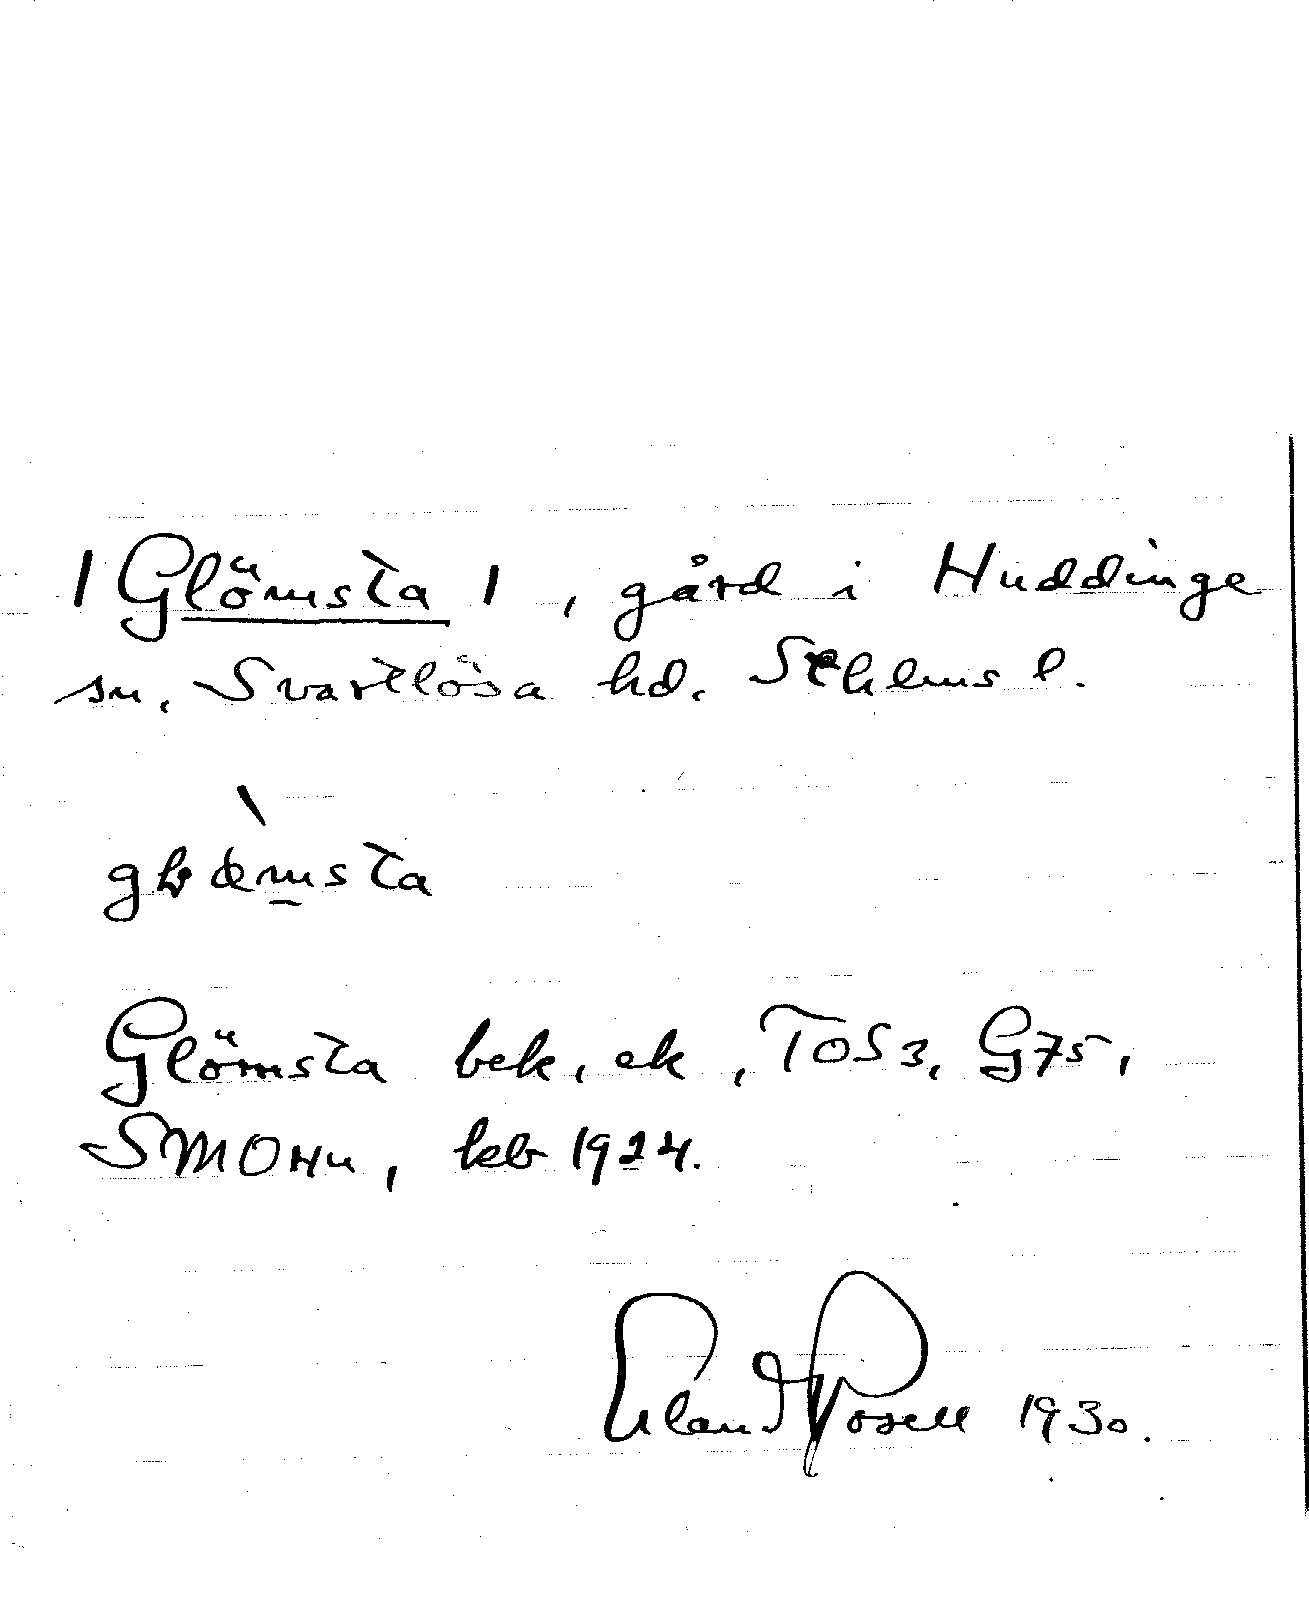 /Glömsta/, gård i Huddinge
sn, Svartlösa hd. Sthlms l.
Glömsta bek, ek, TOS3, G75,
SMOHu, leb 1924.
Erland Rosell 1930.